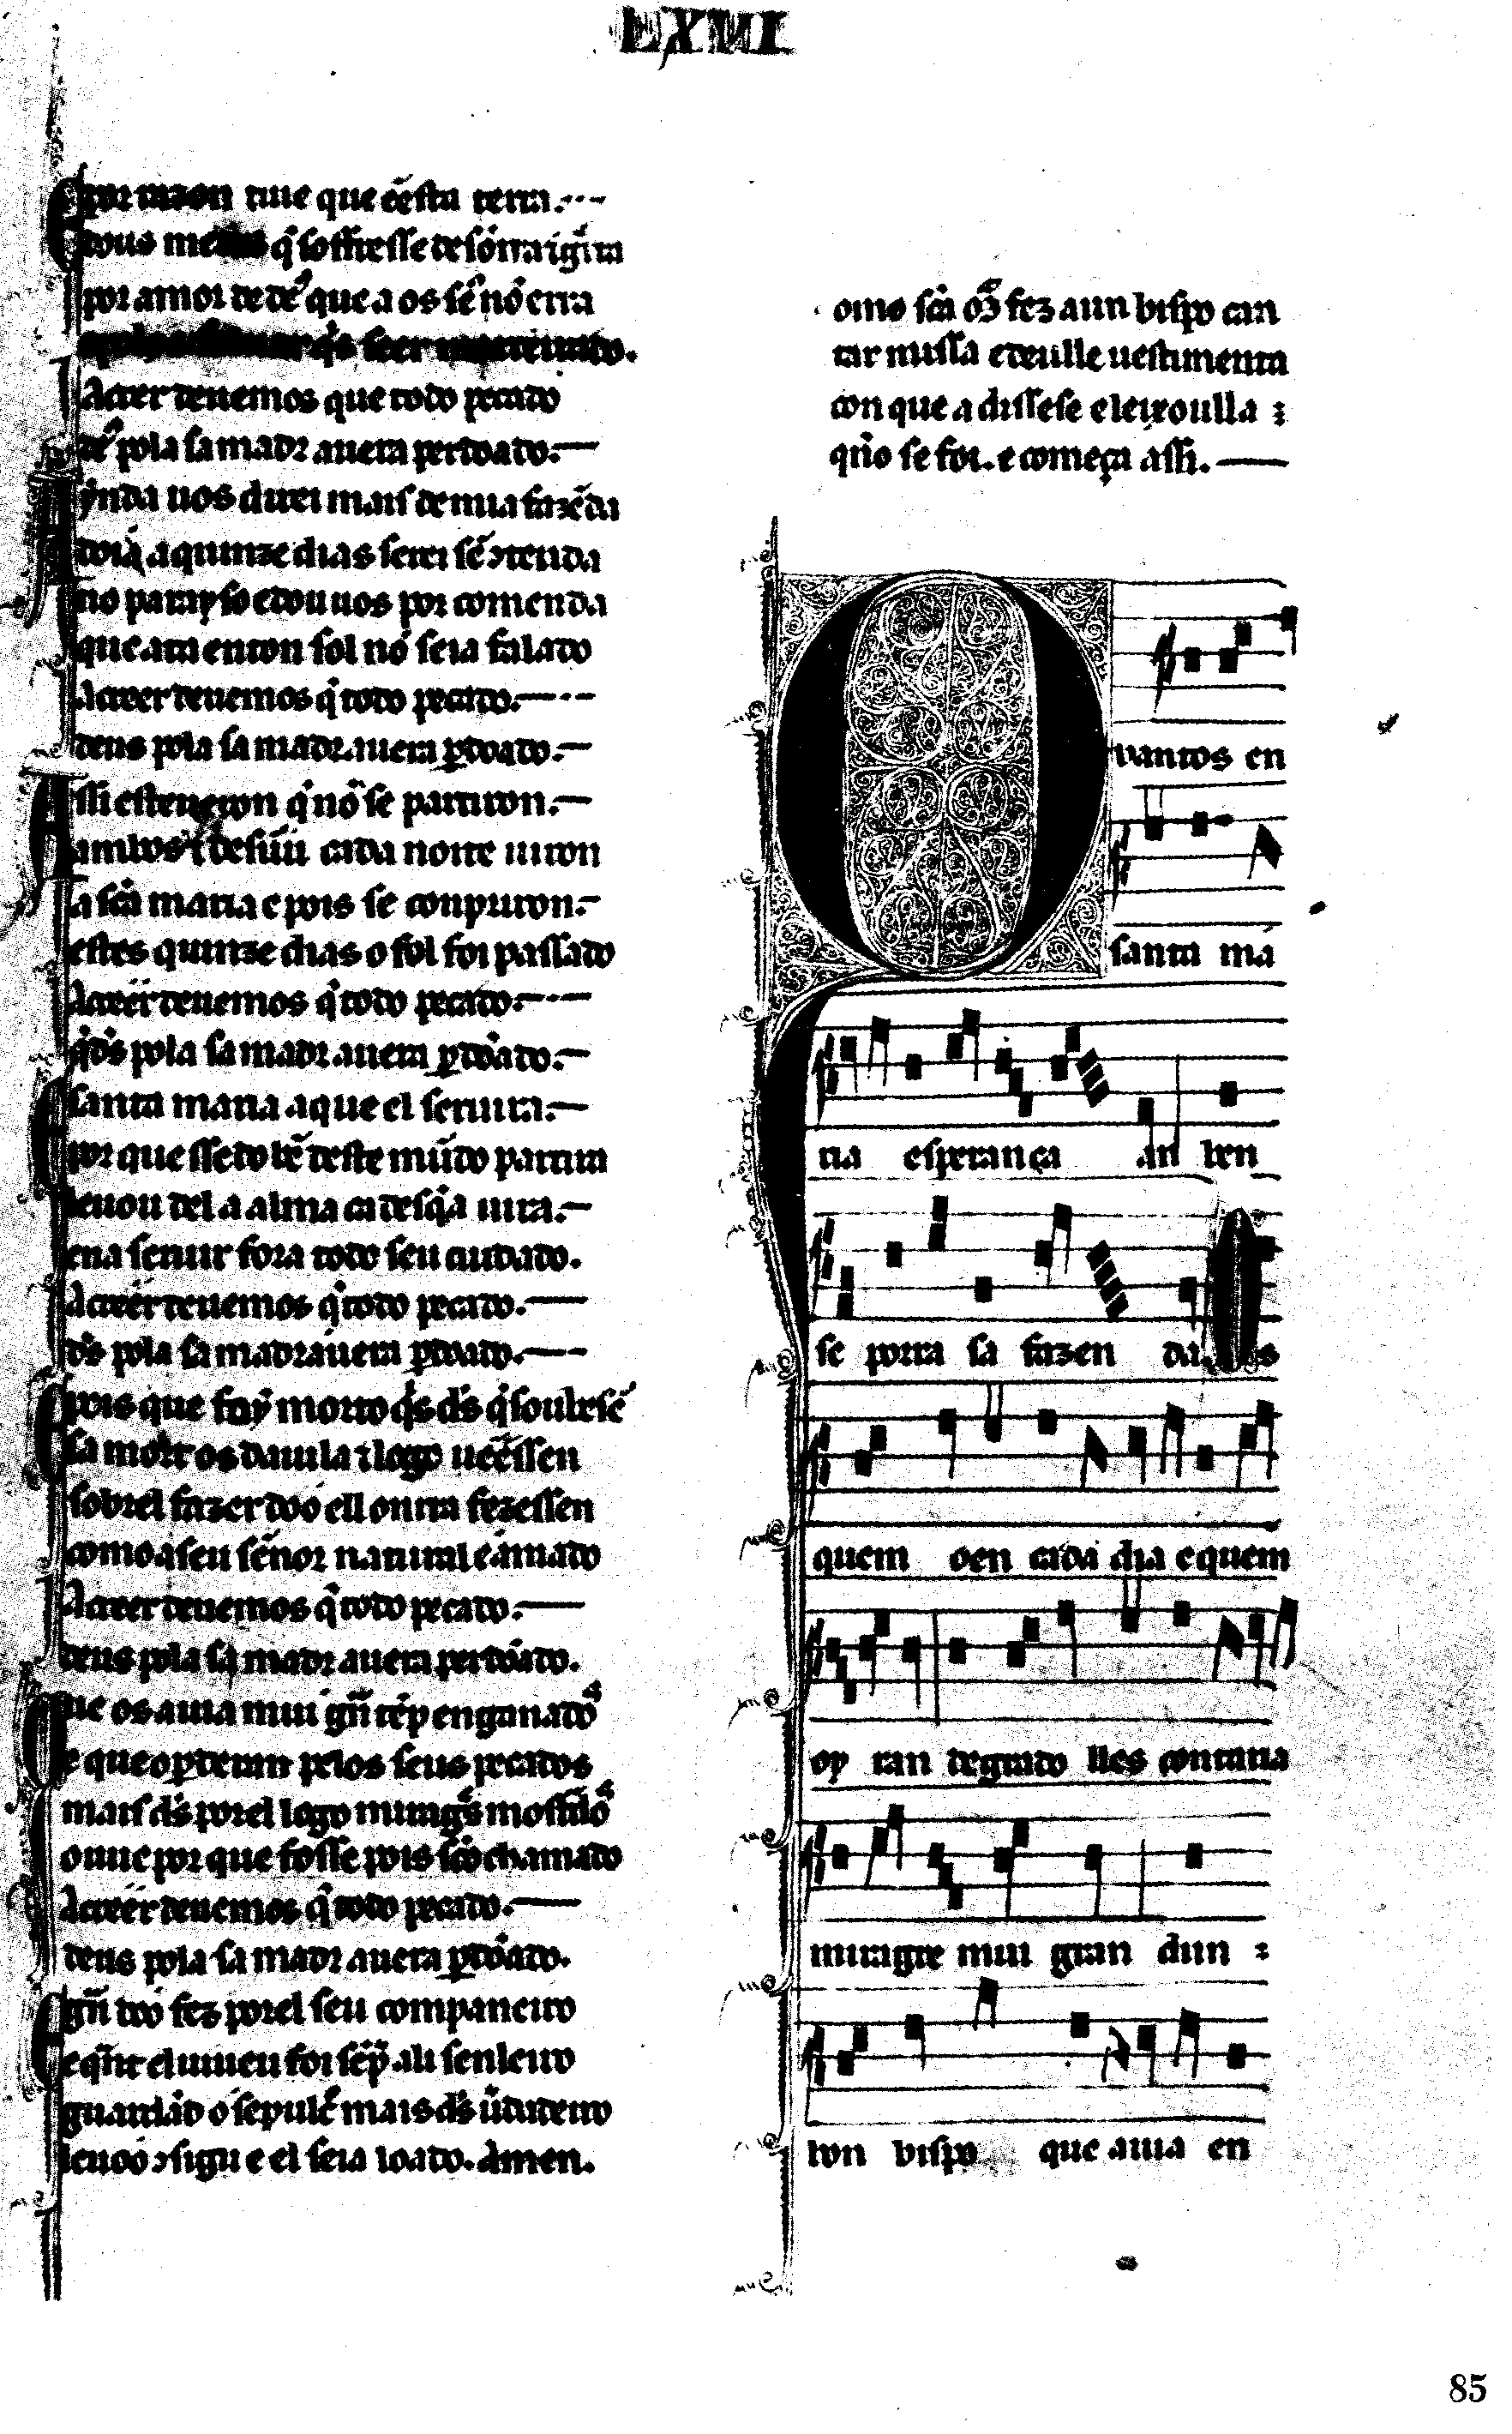 LXVI
por razon tiue que ẽ esta terra.
uous me q̇ soffresse desõrraigr̃ra
por amor de de⁹ que a os sẽ⁹ nõ erra
q̇s seer
A creer deuemos que todo pecado
de⁹ pola sa madr auera perdoado.
ynda uos direi mais de mia fazẽda
doia a quinze dias serei sẽ ↄtenda
no parayso e dou uos por comenda
que ata enton sol nõ seia falado
A creer deuemos q̇ todo pecado.
deus pola sa madr. auera ꝑdoado.
Assi esteueron q̇ nõ se partiron.
ambos desũu cada noite uiron
a sc̃a maria e pois se conpriron.
estes quinze dias o fol foi passado
A creer deuemos q̇ todo pecado.
q̇ ds̃ pola sa madr. auera ꝑdoado.
E santa maria a que el seruira.
por que sse do bẽ deste mũdo partira
leuou del a alma ca desq̇ a uira.
en a seruir fora todo seu cuidado.
A creer deuemos q̇ todo pecado.
ds̃ pola sa madr auera ꝑdoado.
E pois que foy morto q̇s ds̃ q̇ soubesẽ
sa mort os da uila ⁊ logo uẽessen
sobrel fazer doo e ll onrra fezessen
como a seu sẽnor natural e amado
A creer deuemos q̇ todo pecado.
deus pola sa madr auera perdoado.
Que os auia mui gñ tẽp enganado⁹
e que o ꝑderan pelos seus pecados
mais ds̃ porel logo miragr̃s mostrado⁹
ouue por que fosse pois sc̃o chamado
A creer deuemos q̇ todo pecado.
deus pola sa madr auera ꝑdoado.
E gñ doo fez porel seu companeiro
e q̃nt el uiueu foi sẽp̃ ali senlleiro
guardãdo o sepulc̃ mais ds̃ ũdadeiro
leuoo ↄsigu e el seia loado. Amen.
omo sc̃a mã fez a un bispo can
tar missa e deulle uestimenta
con que a dissese e leixoulla :
q̃no se foi. e começa assi.
Q uantos en
santa ma
ria esperança an ben
se porra sa fazen da. os
quem oen cada dia e quem
oy ran de grado lles contaria
miragre mui gran dun :
bon bispo que auia en
85